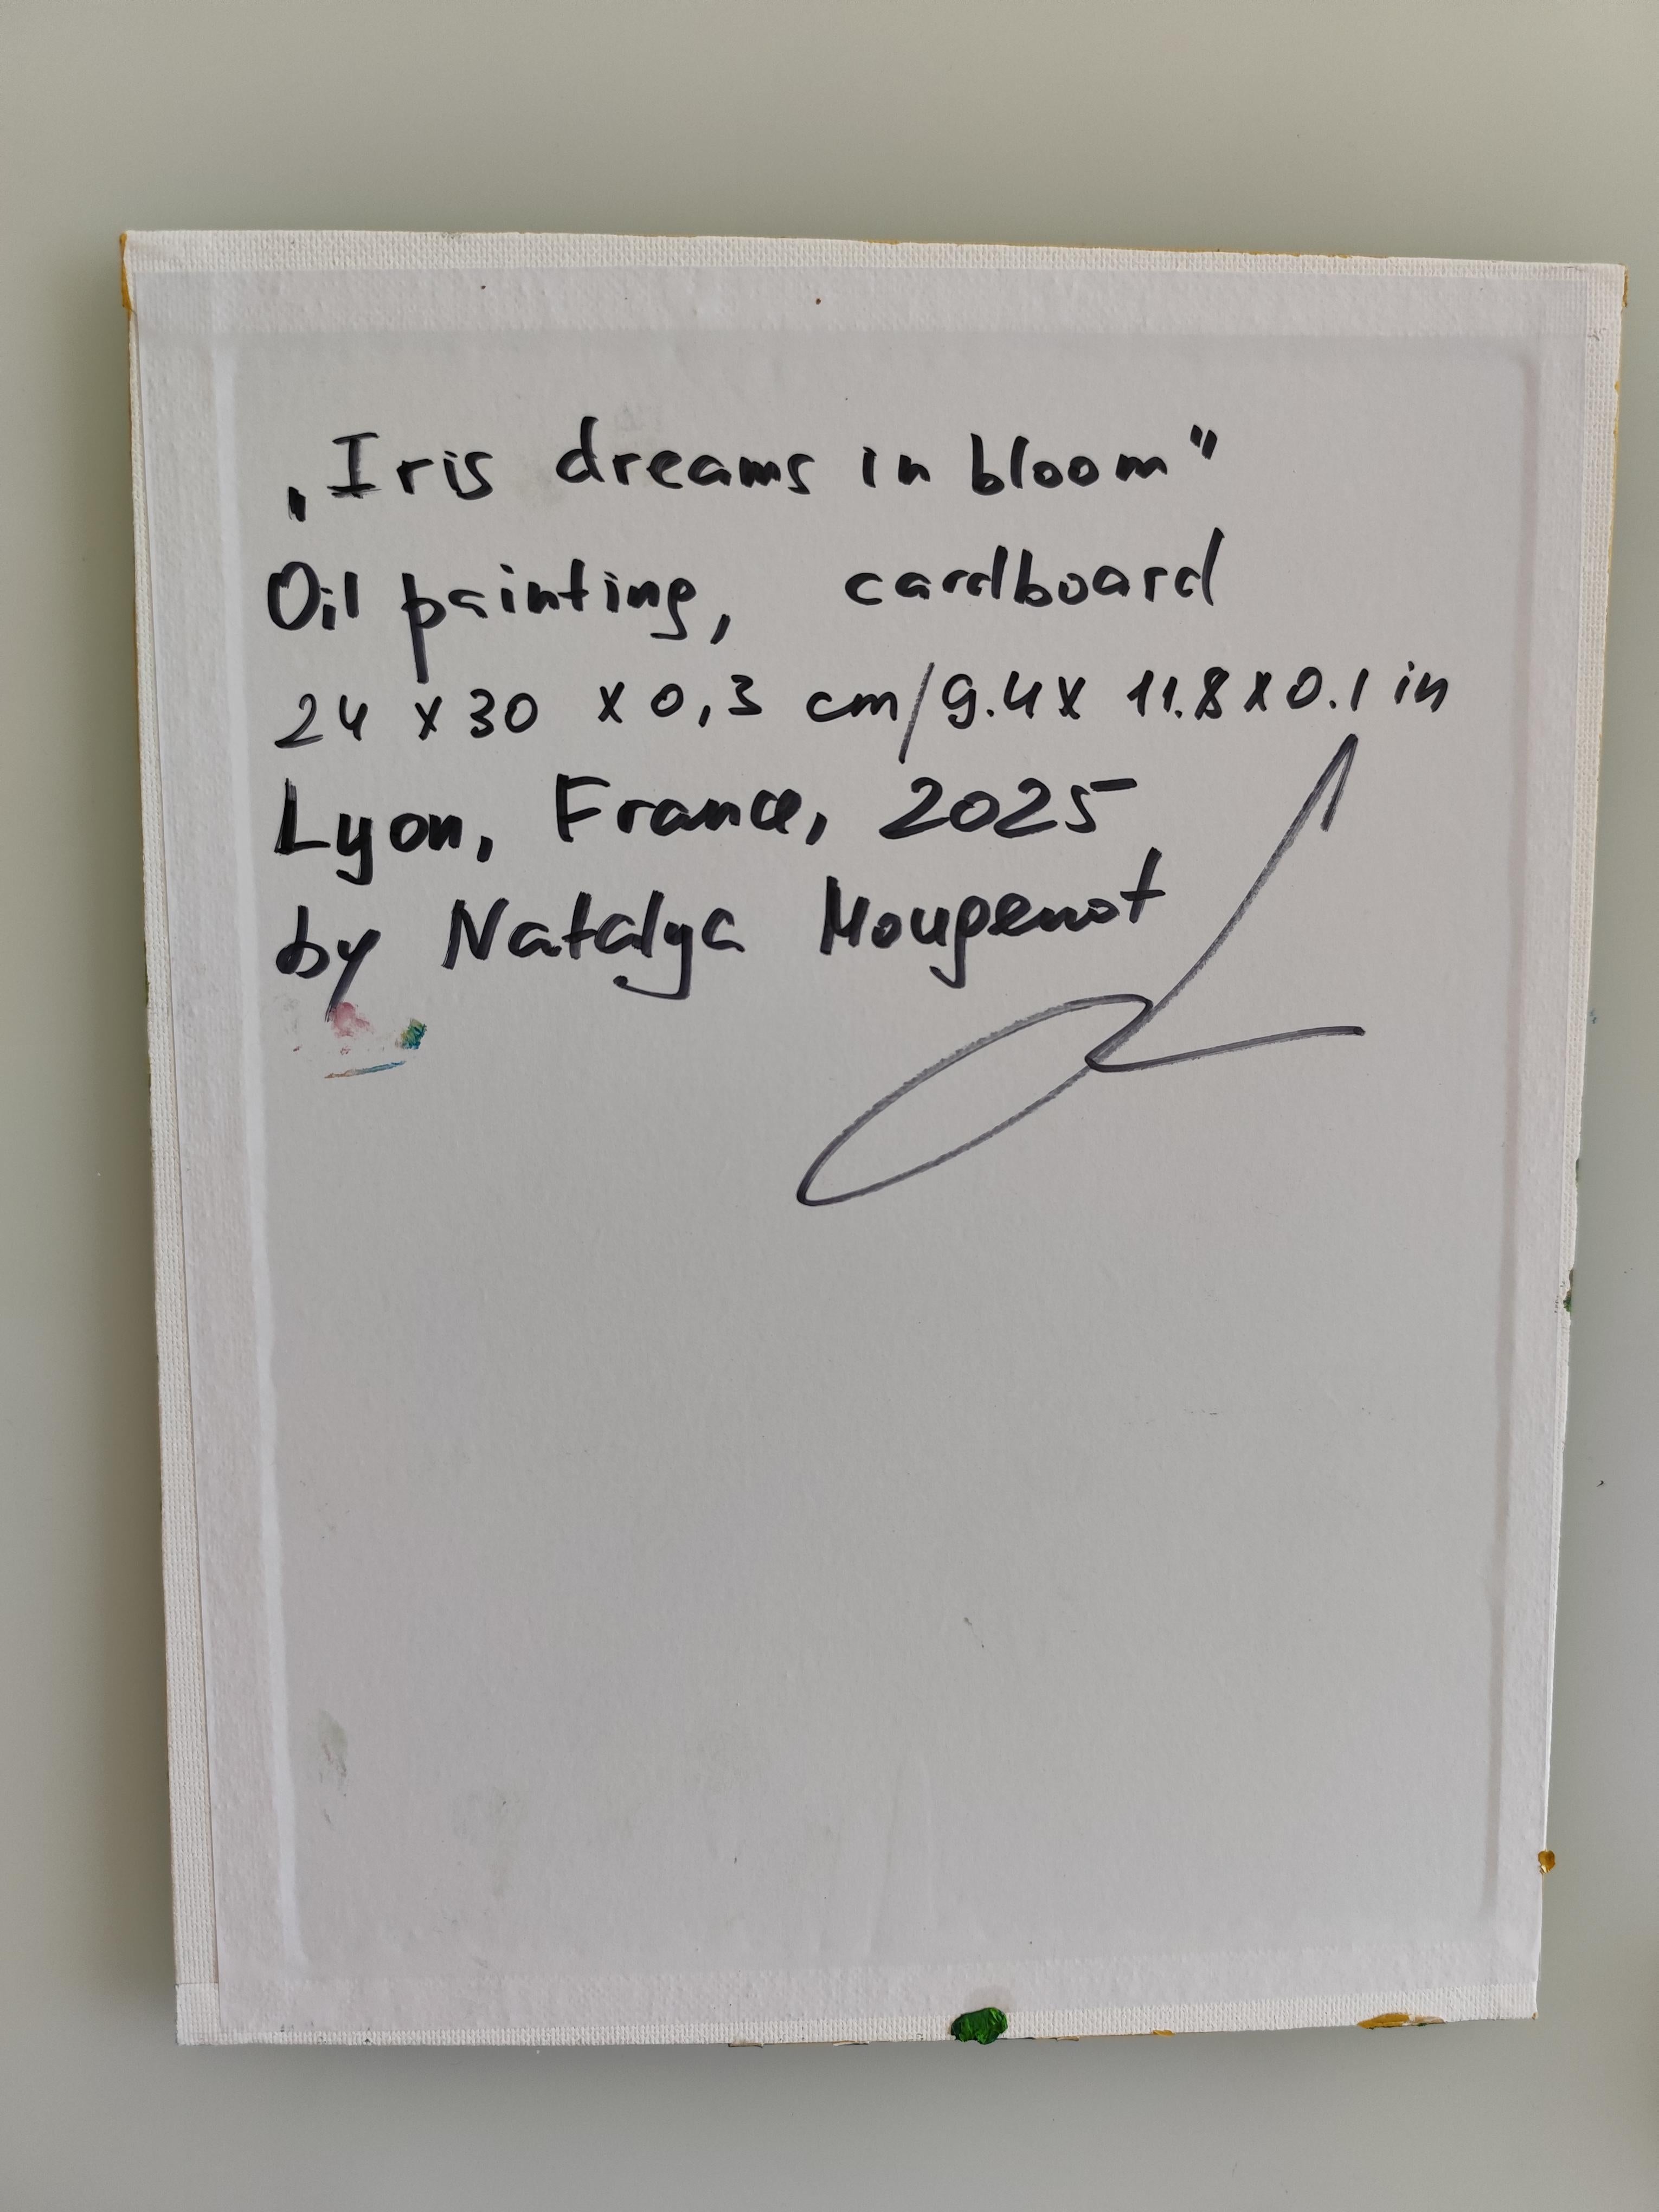 „Iris dreams in bloom"
Oil painting, cardboard
24 x 30 x 0,3 cm/9.4 x 11.8 x 0.1 in
Lyon, France, 2025
by Natalya Mougenot